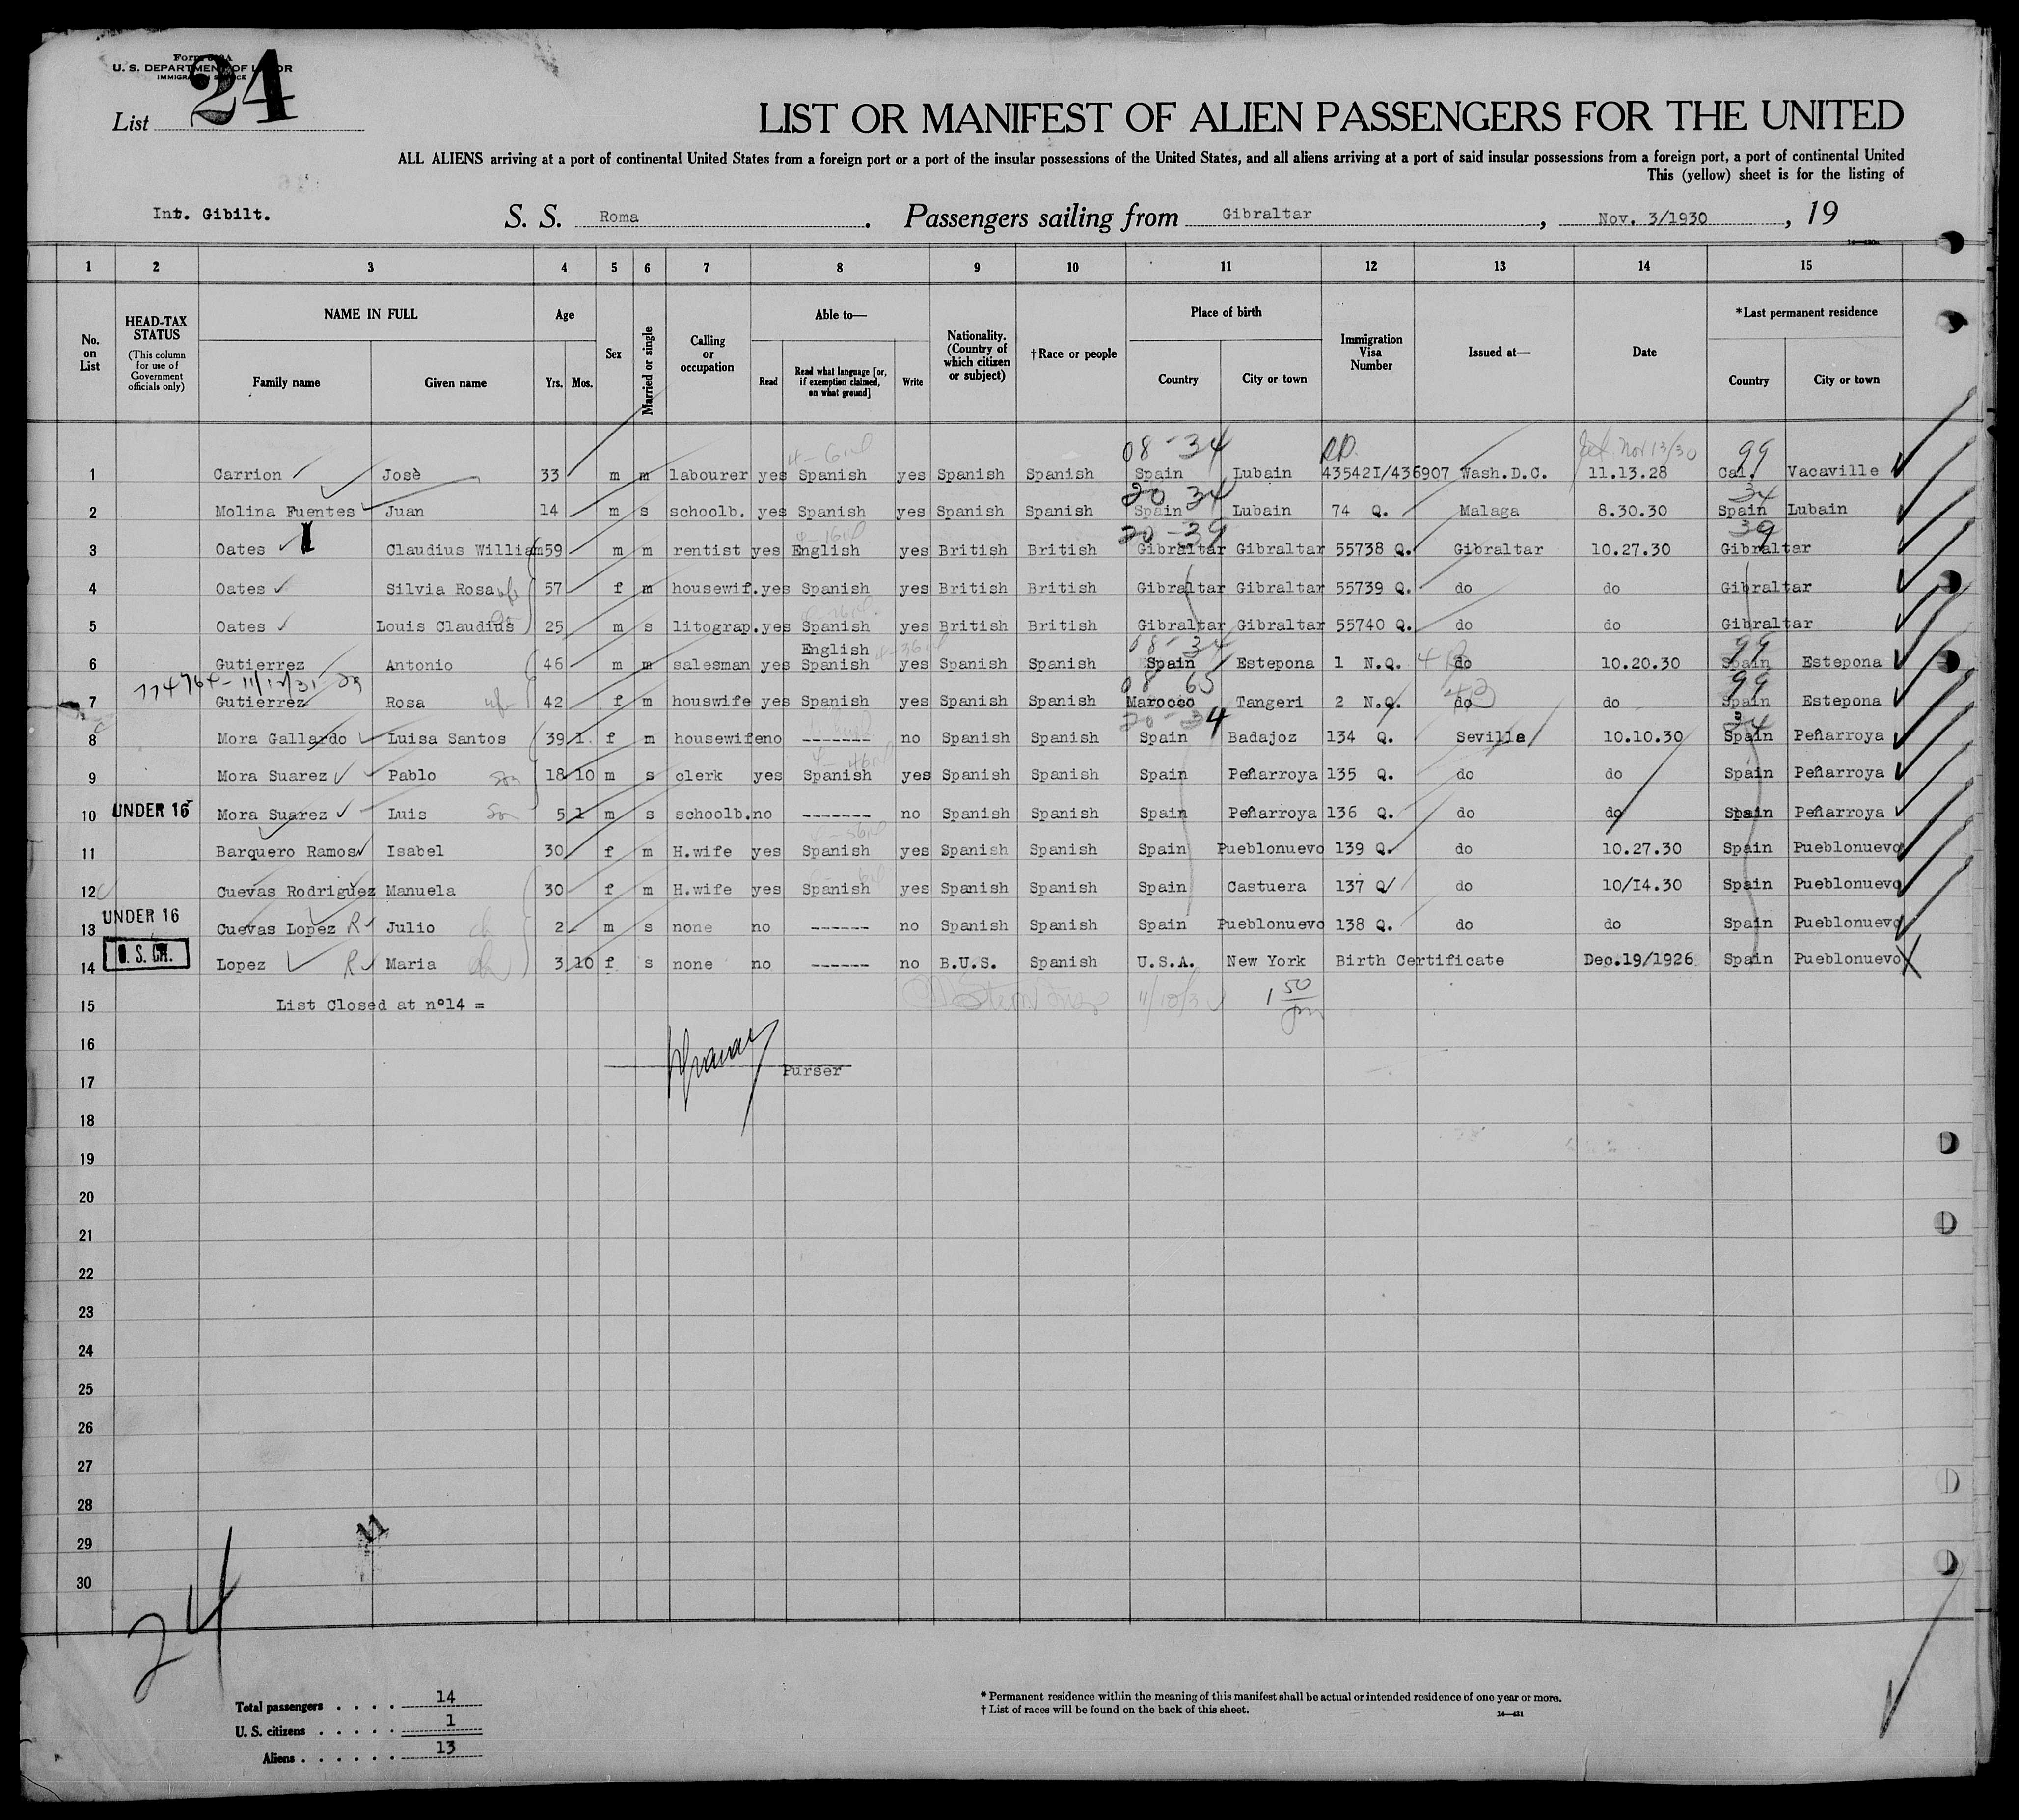 Form
U. S. DEPARTMENT OF LABOR
IMMIGRATION SERVICE
List 24
LIST OR MANIFEST OF ALIEN PASSENGERS FOR THE UNITED
ALL ALIENS arriving at a port of continental United States from a foreign port or a port of the insular possessions of the United States, and all aliens arriving at a port of said insular possessions from a foreign port, a port of continental United
This (yellow) sheet is for the listing of
Int. Gibilt. S. S. Roma. Passengers sailing from Gibraltar, Nov. 3/1930, 19
1 2 3 4 5 6 7 8 9 10 11 12 13 14 15
No. on List
HEAD-TAX STATUS (This column for use of Government officials only)
NAME IN FULL
Family name Given name
Age
Yrs. Mos.
Sex
Married or single
Calling or occupation
Able to—
Read Read what language [or, if exemption claimed, on what ground] Write
Nationality. (Country of which citizen or subject)
†Race or people
Place of birth
Country City or town
Immigration Visa Number
Issued at—
Date
*Last permanent residence
Country City or town
08-34 Nov 13/30 99
1 Carrion Josè 33 m m labourer yes Spanish yes Spanish Spanish Spain Lubain 435421/436907 Wash.D.C. 11.13.28 Cal. Vacaville
20 34 34
2 Molina Fuentes Juan 14 m s schoolb. yes Spanish yes Spanish Spanish Spain Lubain 74 Q. Malaga 8.30.30 Spain Lubain
20-39 39
3 Oates Claudius William 59 m m rentist yes English yes British British Gibraltar Gibraltar 55738 Q. Gibraltar 10.27.30 Gibraltar
4 Oates Silvia Rosa wf 57 f m housewif. yes Spanish yes British British Gibraltar Gibraltar 55739 Q. do do Gibraltar
5 Oates Louis Claudius 25 m s litograp. yes Spanish yes British British Gibraltar Gibraltar 55740 Q. do do Gibraltar
English 08-34 99
6 Gutierrez Antonio 46 m m salesman yes Spanish yes Spanish Spanish Spain Estepona 1 N.Q. do 10.20.30 Spain Estepona
08 65 99
7 Gutierrez Rosa wf 42 f m houswife yes Spanish yes Spanish Spanish Marocco Tangeri 2 N.Q. do do Spain Estepona
20-34 34
8 Mora Gallardo Luisa Santos 39 1 f m housewife no ------- no Spanish Spanish Spain Badajoz 134 Q. Sevilla 10.10.30 Spain Peñarroya
9 Mora Suarez Pablo son 18 10 m s clerk yes Spanish yes Spanish Spanish Spain Peñarroya 135 Q. do do Spain Peñarroya
10 UNDER 16 Mora Suarez Luis son 5 1 m s schoolb. no ------- no Spanish Spanish Spain Peñarroya 136 Q. do do Spain Peñarroya
11 Barquero Ramos Isabel 30 f m H.wife yes Spanish yes Spanish Spanish Spain Pueblonuevo 139 Q. do 10.27.30 Spain Pueblonuevo
12 Cuevas Rodriguez Manuela 30 f m H.wife yes Spanish yes Spanish Spanish Spain Castuera 137 Q do 10/14.30 Spain Pueblonuevo
13 UNDER 16 Cuevas Lopez R Julio ch 2 m s none no ------ no Spanish Spanish Spain Pueblonuevo 138 Q. do do Spain Pueblonuevo
14 U. S. CIT. Lopez R Maria ch 3 10 f s none no ------ no B.U.S. Spanish U.S.A. New York Birth Certificate Dec.19/1926 Spain Pueblonuevo
15 List Closed at nº14 = 1 50
16
Purser
17
18
19
20
21
22
23
24
25
26
27
28
29
30
11
24
Total passengers . . . . 14
U. S. citizens . . . . . 1
Aliens . . . . . . 13
* Permanent residence within the meaning of this manifest shall be actual or intended residence of one year or more.
† List of races will be found on the back of this sheet.
14—431